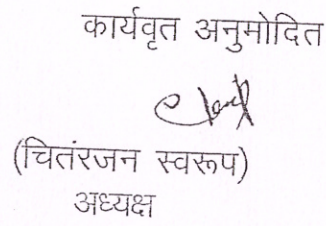 कार्यवृत अनुमोदित
(चितंरजन स्वरूप)
अध्यक्ष